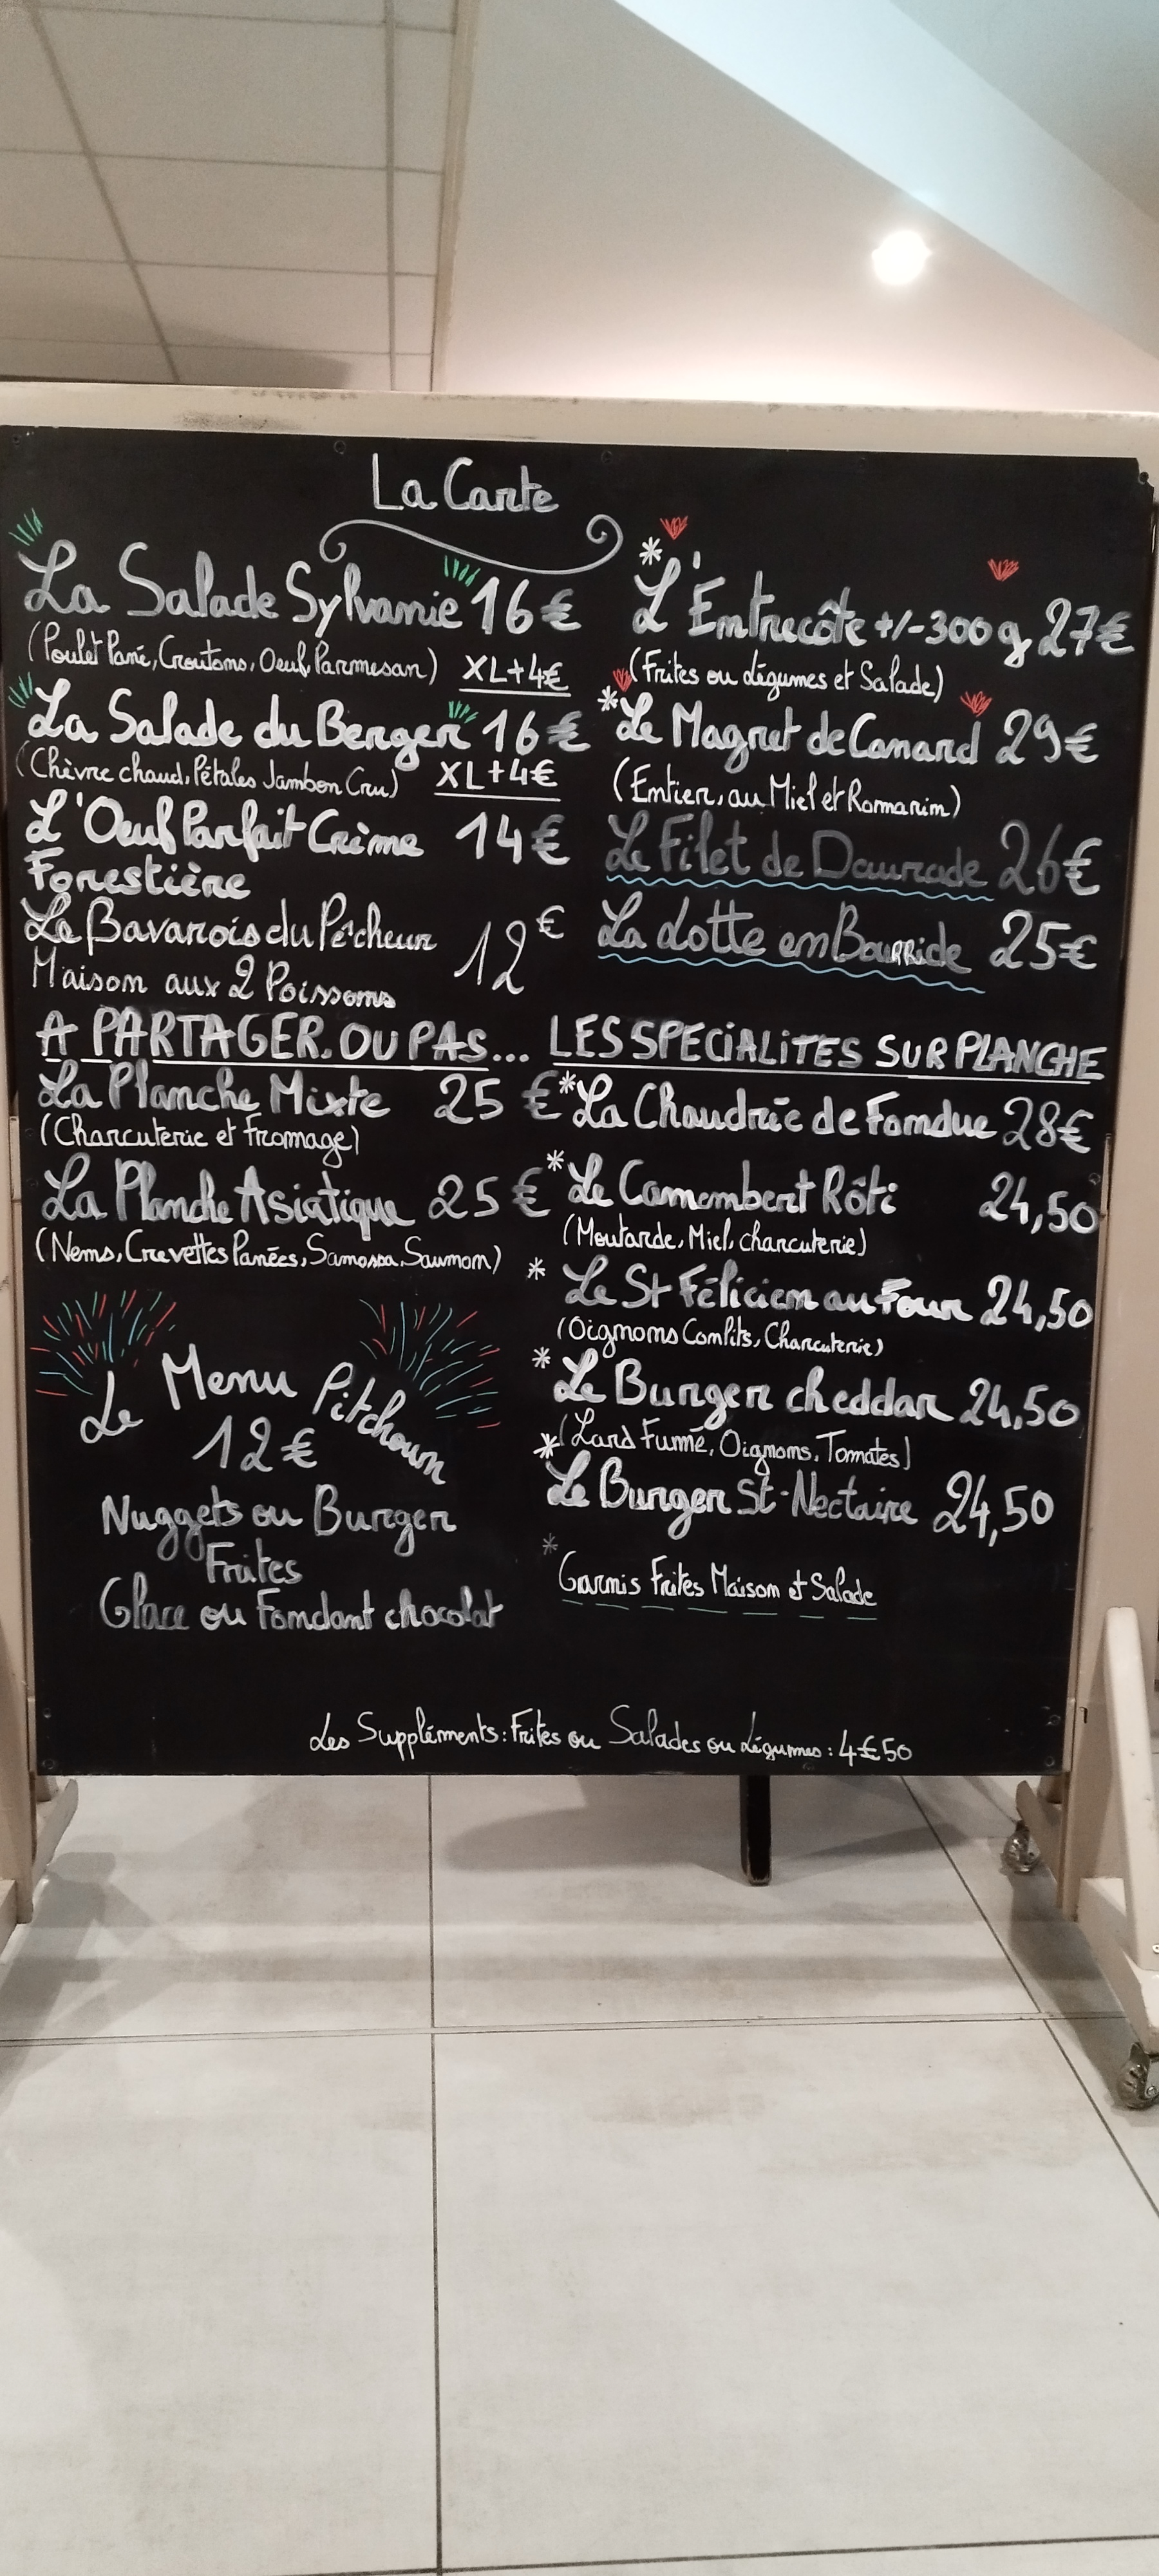 La Carte
La Salade Sylvanie 16€
(Poulet Pané, Croutons, Oeuf, Parmesan) XL+4€
La Salade du Berger 16€
(Chèvre chaud, Pétales Jambon Cru) XL+4€
L'Oeuf Parfait Crème 14€
Forestière
Le Bavarois du Pêcheur 12€
Maison aux 2 Poissons
A PARTAGER, OU PAS...
La Planche Mixte 25 €
(Charcuterie et Fromage)
La Planche Asiatique 25 €
(Nems, Crevettes Panées, Samossa, Saumon)
Le Menu Pitchoun
12€
Nuggets ou Burger
Frites
Glace ou Fondant chocolat
*L'Entrecôte +/-300g 27€
(Frites ou légumes et Salade)
*Le Magret de Canard 29€
(Entier, au Miel et Romarin)
Le Filet de Daurade 26€
La Lotte en Bourride 25€
LES SPECIALITES SUR PLANCHE
*La Chaudrée de Fondue 28€
*Le Camembert Rôti 24,50
(Moutarde, Miel, charcuterie)
* Le St Félicien au Four 24,50
(Oignons Confits, Charcuterie)
* Le Burger cheddar 24,50
(Lard Fumé, Oignons, Tomates)
* Le Burger St-Nectaire 24,50
* Garnis Frites Maison et Salade
Les Suppléments: Frites ou Salades ou Légumes: 4€50